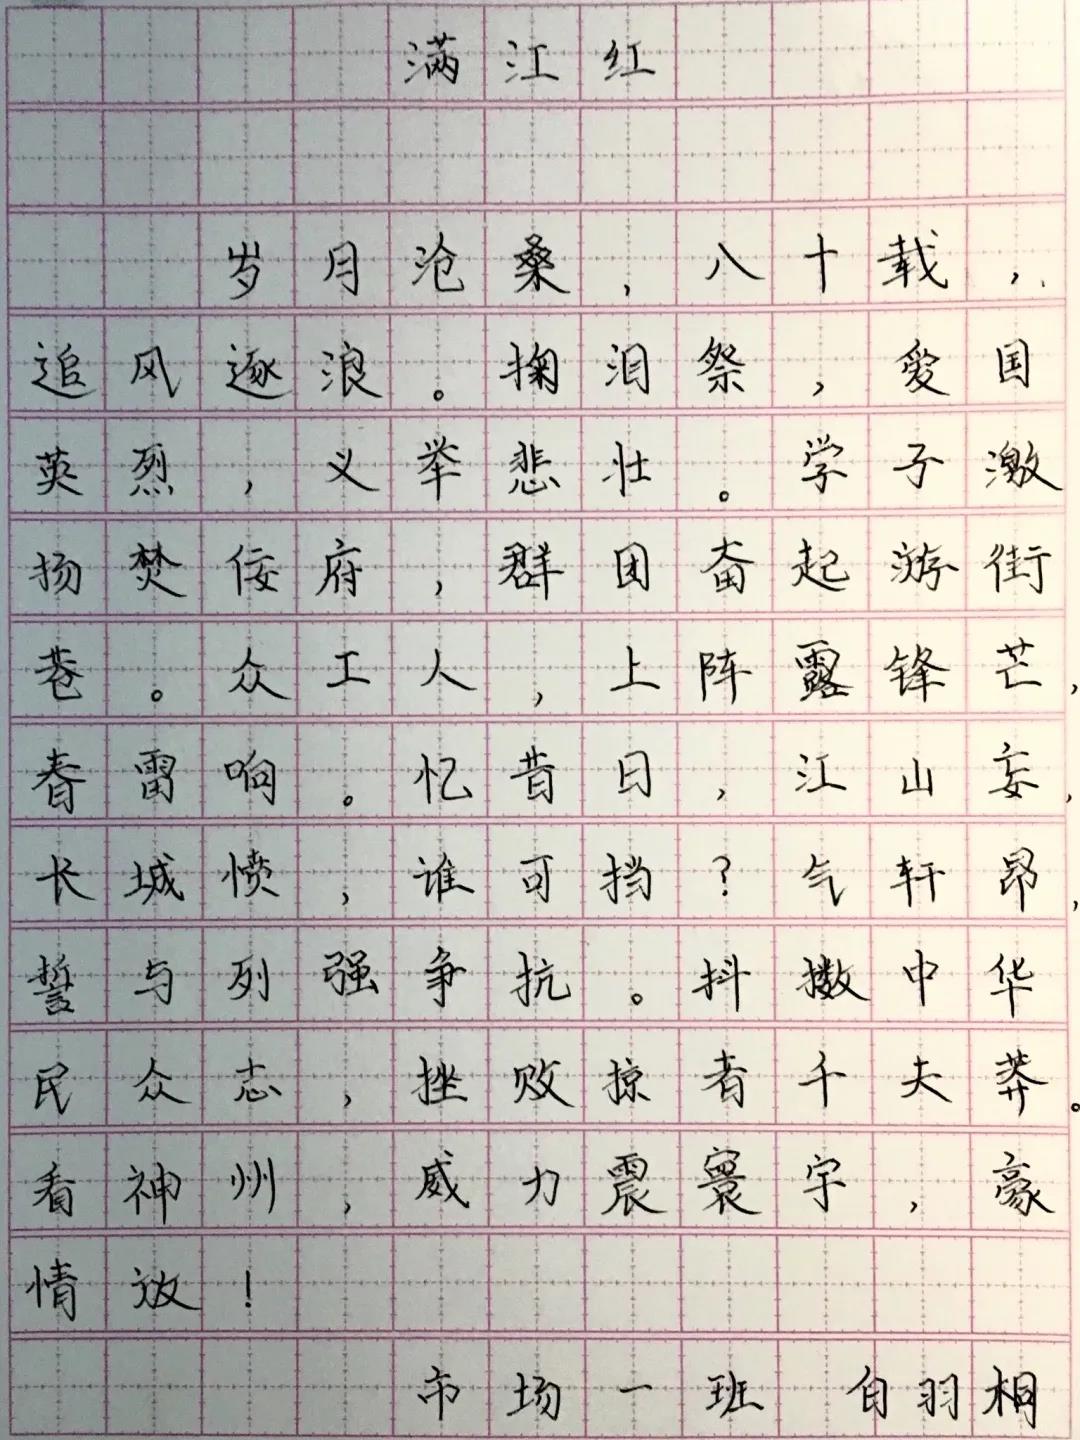 满江红
岁月沧桑，八十载，
追风逐浪。掬泪祭，爱国
英烈，义举悲壮。学子激
扬焚佞府，群团奋起游街
巷。众工人，上阵露锋芒，
春雷响。忆昔日，江山妄，
长城愤，谁可挡？气轩昂，
誓与列强争抗。抖擞中华
民众志，挫败掠者千夫莽。
看神州，威力震寰宇，豪
情放！
市场一班 白羽相